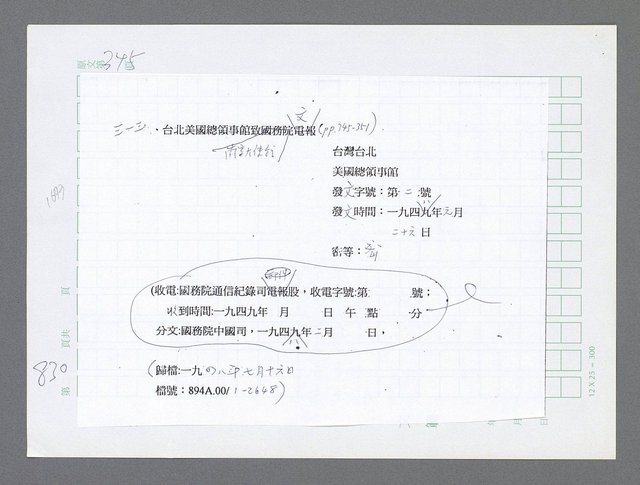 原文第345頁
三一三、台北美國總領事館致國務院電報(pp.345-351)
文
南京大使館
台灣台北
美國總領事館
發文字號：第二號
發文時間：一九四九年元月
二十六日
密等：
(收電:國務院通信紀錄司電報股，收電字號:第 號；
收到時間:一九四九年 月 日 午 點 分
分文:國務院中國司，一九四九年二月 日，
八
(歸檔:一九四八年七月十六日
檔號：894A.00/1-2648)
頁
頁共
830
第
12 X 25 = 300
年
月
日